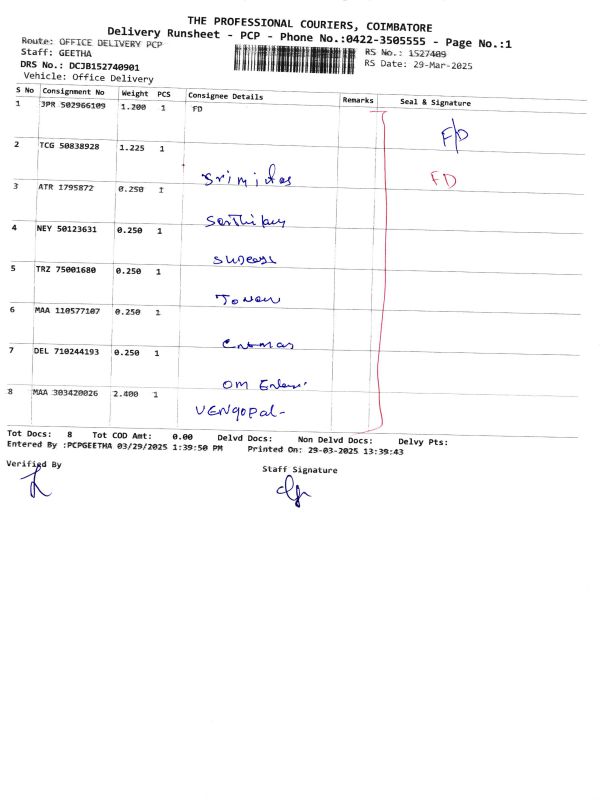 THE PROFESSIONAL COURIERS, COIMBATORE
Delivery Runsheet - PCP - Phone No.:0422-3505555 - Page No.:1
Route: OFFICE DELIVERY PCP
RS No.: 1527409
Staff: GEETHA
RS Date: 29-Mar-2025
DRS No.: DCJB152740901
Vehicle: Office Delivery
S No Consignment No Weight PCS Consignee Details Remarks Seal & Signature
1 JPR 502966109 1.200 1 FD F/D
2 TCG 50838928 1.225 1
FD
3 ATR 1795872 0.250 1
4 NEY 50123631 0.250 1
5 TRZ 75001680 0.250 1
6 MAA 110577107 0.250 1
7 DEL 710244193 0.250 1
OM
8 MAA 303420026 2.400 1 VENGOPAL-
Tot Docs: 8 Tot COD Amt: 0.00 Delvd Docs: Non Delvd Docs: Delvy Pts:
Entered By :PCPGEETHA 03/29/2025 1:39:50 PM Printed On: 29-03-2025 13:39:43
Verified By Staff Signature